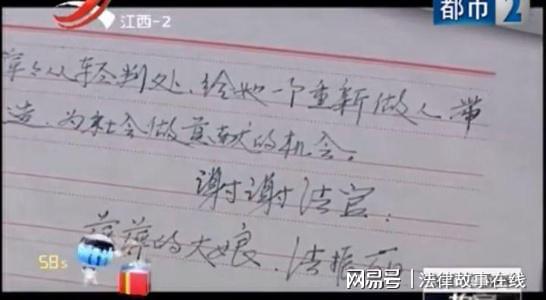 江西-2
都市2
从轻判处、给她一个重新做人
造、为社会做贡献的机会。
谢谢法官
萍萍的大娘、洪振
58s
网易号 | 法律故事在线